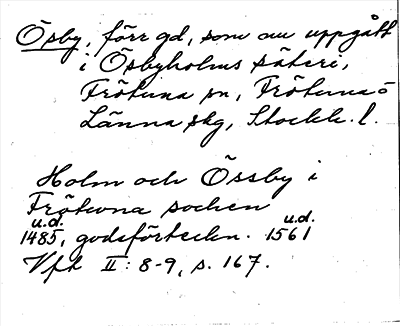 Ösby, förr gd, som nu uppgått
i Ösbyholms säteri,
Frötuna sn, Frötuna o
Länna skg, Stockh. l.
Holm och Össby i
Frötwna sochen
u.d. u.d.
1485, godsförteckn. 1561
Vfk II: 8-9, s. 167.